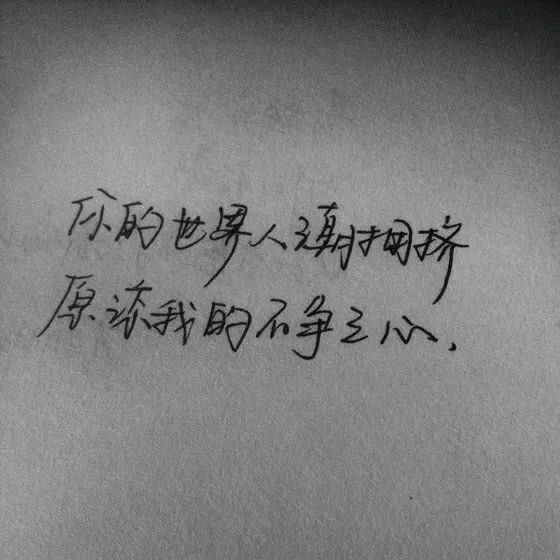 你的世界人潮拥挤
原谅我的不争之心,